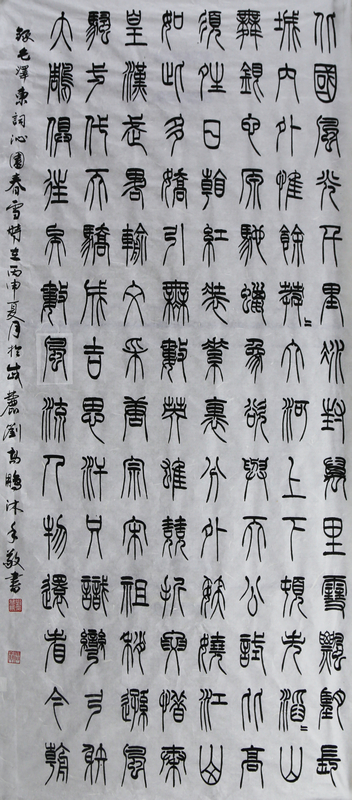 北國風光千里冰封萬里雪飄望長
城內外惟餘莽〻大河上下頓失滔〻山
舞銀蛇原馳蠟象欲與天公試比高
須晴日看紅裝素裹分外妖嬈江山
如此多嬌引無數英雄競折腰惜秦
皇漢武略輸文采唐宗宋祖稍遜風
騷一代天驕成吉思汗只識彎弓射
大雕俱往矣數風流人物還看今朝
錄毛澤東詞沁園春雪時在丙申夏月於劉鵬沐手敬書